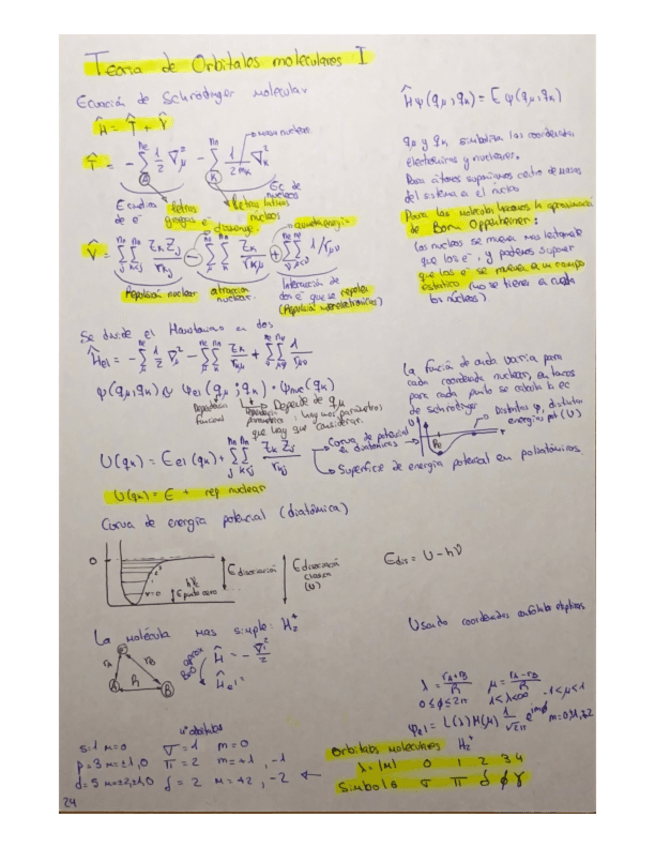 Teoria de Orbitales moleculares I
Ecuación de Schrödinger molecular
Ĥψ(qμ,qk) = E ψ(qμ,qk)
Ĥ = T̂ + V̂
masa nuclear
T̂ = - Σ 1/2 ∇²μ - Σ 1/2mk ∇²k
Ec de núcleos
de e⁻
Letras griegas e⁻
Letras latinas núcleos
qμ y qk simboliza las coordenadas
electrónicas y nucleares.
Para átomos suponíamos centro de masas
del sistema a el núcleo
Para las moléculas hacemos la aproximación
de Born Oppenheimer:
Los núcleos se mueven mas lentamente
que los e⁻, y podemos suponer
que los e⁻ se mueven en un campo
estatico (no se tiene en cuenta
los núcleos).
V̂ = ΣΣ Zk Zj / rkj - ΣΣ Zk / rkμ + ΣΣ 1/rμν
Repulsión nuclear
atracción nuclear.
Interacción de
dos e⁻ que se repelen
(Repulsión interelectrónica)
Se divide el Hamiltoniano en dos
Ĥel = - Σ 1/2 ∇²μ - ΣΣ Zk / rkμ + ΣΣ 1 / rμν
ψ(qμ,qk) ≈ ψel(qμ;qk) · ψnuc(qk)
Dependencia funcional
Depende de qμ
hay mas parámetros
que hay que considerar.
La función de onda varia para
cada coordenada nuclear, entonces
para cada punto se calcula la ec
de schrodinger
Distintas ψ, distintas
energías pot (U)
U
r
R₀
U(qk) = Eel(qk) + ΣΣ Zk Zj / rkj
Curva de potencial en diatómicas
Superficie de energía potencial en poliatómicas.
U(qk) = E + rep nuclear
Curva de energía potencial (diatómica)
0
v=0
E punto cero
E disociación
E disociación clasica (U)
Edis = U - hν
La molécula mas simple: H₂⁺
Usando coordenadas elipticas
e⁻
rA
rB
A
R
B
aprox B-O
Ĥ = - ∇²/2
Ĥel =
λ = rA+rB / R
μ = rA-rB / R
0≤ϕ≤2π
1<λ<∞
-1<μ<1
ψel = L(λ) M(μ) 1/√2π e^imϕ
nº orbitales
s=1 m=0
σ=1 m=0
p=3 m=±1,0
π=2 m=+1, -1
d=5 m=±2,±1,0
δ=2 m=+2, -2
Orbitales moleculares H₂⁺
λ=|m| 0 1 2 3 4
Simbolo σ π δ ϕ γ
24